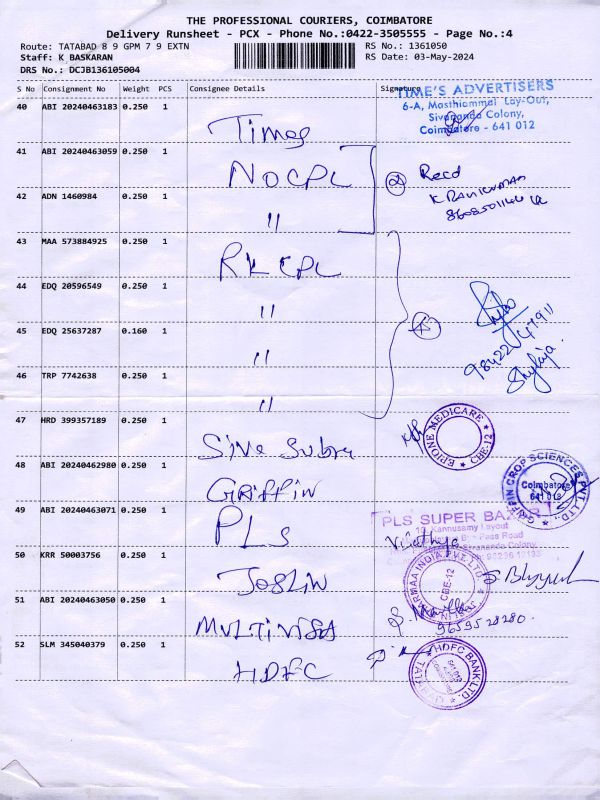 THE PROFESSIONAL COURIERS, COIMBATORE
Delivery Runsheet - PCX - Phone No.:0422-3505555 - Page No.:4
Route: TATABAD 8 9 GPM 7 9 EXTN
RS No.: 1361050
Staff: K BASKARAN
RS Date: 03-May-2024
DRS No.: DCJB136105004
S No Consignment No Weight PCS Consignee Details Signature
TIME'S ADVERTISERS
6-A, Masthiammal Lay-Out,
Sivananda Colony,
Coimbatore - 641 012
40 ABI 20240463183 0.250 1 Times
41 ABI 20240463059 0.250 1 NOCPL
② Recd
42 ADN 1460984 0.250 1 "
43 MAA 573884925 0.250 1 RKCPL
44 EDQ 20596549 0.250 1 "
45 EDQ 25637287 0.160 1 "
98422 47911
Shylaja.
46 TRP 7742638 0.250 1 "
47 HRD 399357189 0.250 1 Siva Subra
EPIONE MEDICARE
CBE-12
48 ABI 20240462980 0.250 1 Griffin
GRIFFIN CROP SCIENCES PVT. LTD.
Coimbatore
49 ABI 20240463071 0.250 1 PLS
PLS SUPER BAZAR
Kannusamy Layout
Pass Road
Sivananda Colony
50 KRR 50003756 0.250 1 Joslin
INDIA PVT. LTD
CBE-12
51 ABI 20240463050 0.250 1 MULTIVISTA
9659528280.
52 SLM 345040379 0.250 1 HDFC
HDFC BANK LTD.